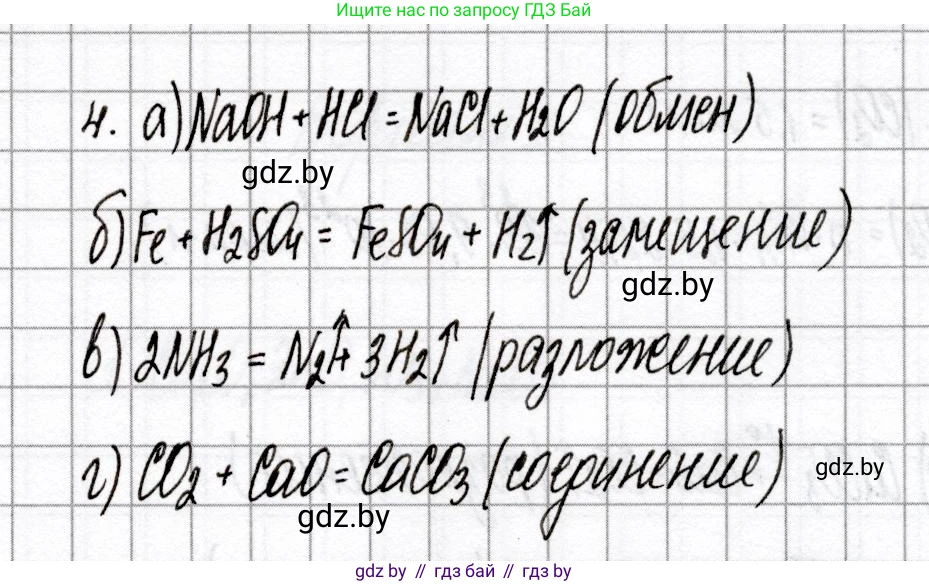 Ищите нас по запросу ГДЗ Бай
4. а) NaOH + HCl = NaCl + H2O (обмен)
gdz.by
б) Fe + H2SO4 = FeSO4 + H2↑ (замещение)
gdz.by
в) 2NH3 = N2↑ + 3H2↑ (разложение)
г) CO2 + CaO = CaCO3 (соединение)
gdz.by
gdz.by
gdz.by // гдз бай // gdz.by